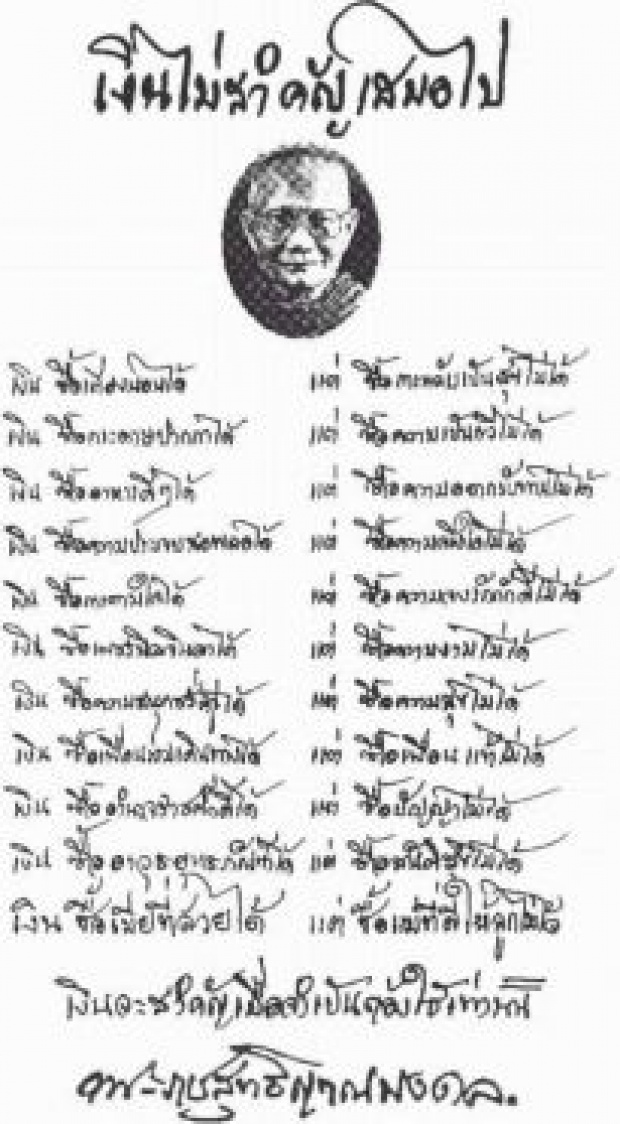 เงินไม่สำคัญเสมอไป
เงิน ซื้อเตียงนอนได้ แต่ ซื้อการหลับเป็นสุขไม่ได้
เงิน ซื้อกระดาษปากกาได้ แต่ ซื้อความเป็นกวีไม่ได้
เงิน ซื้ออาหารดีๆได้ แต่ ซื้อความอยากรับทานไม่ได้
เงิน ซื้อความประจบสอพลอได้ แต่ ซื้อความจริงใจไม่ได้
เงิน ซื้อความ ได้ แต่ ซื้อความจงรักภักดีไม่ได้
เงิน ซื้อเพชรนิลจินดาได้ แต่ ซื้อความงามไม่ได้
เงิน ซื้อความสนุกชั่วครู่ได้ แต่ ซื้อความสุขไม่ได้
เงิน ซื้อเพื่อนร่วมเดินทางได้ แต่ ซื้อเพื่อนแท้ไม่ได้
เงิน ซื้ออำนาจวาสนาได้ แต่ ซื้อปัญญาไม่ได้
เงิน ซื้ออาวุธยุทธภัณฑ์ได้ แต่ ซื้อสันติสุขไม่ได้
เงิน ซื้อเมียที่สวยได้ แต่ ซื้อแม่ที่ดีให้ลูกไม่ได้
เงินจะสำคัญเมื่อจำเป็นต้องใช้เท่านั้น
พระราชสุทธิญาณมงคล.